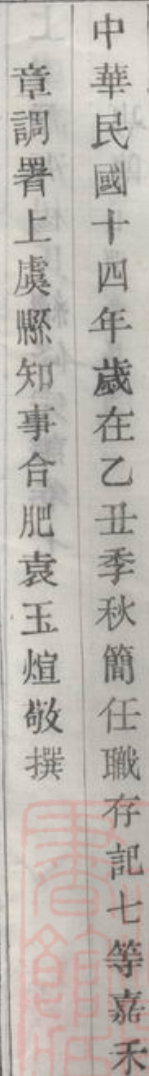 中華民國十四年歲在乙丑季秋簡任職存記七等嘉禾
章調署上虞縣知事合肥袁玉煊敬撰